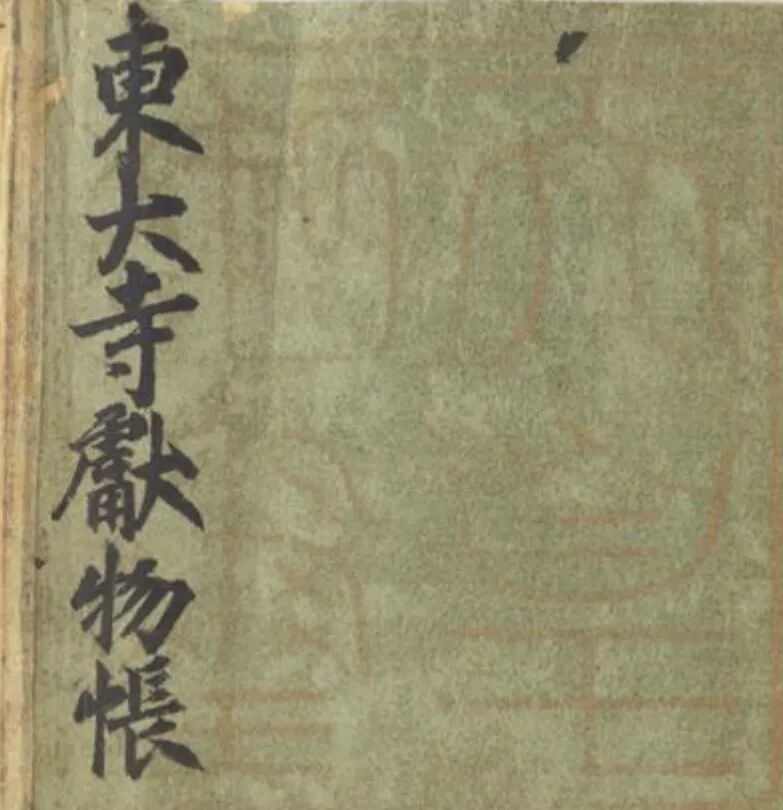 東大寺獻物帳